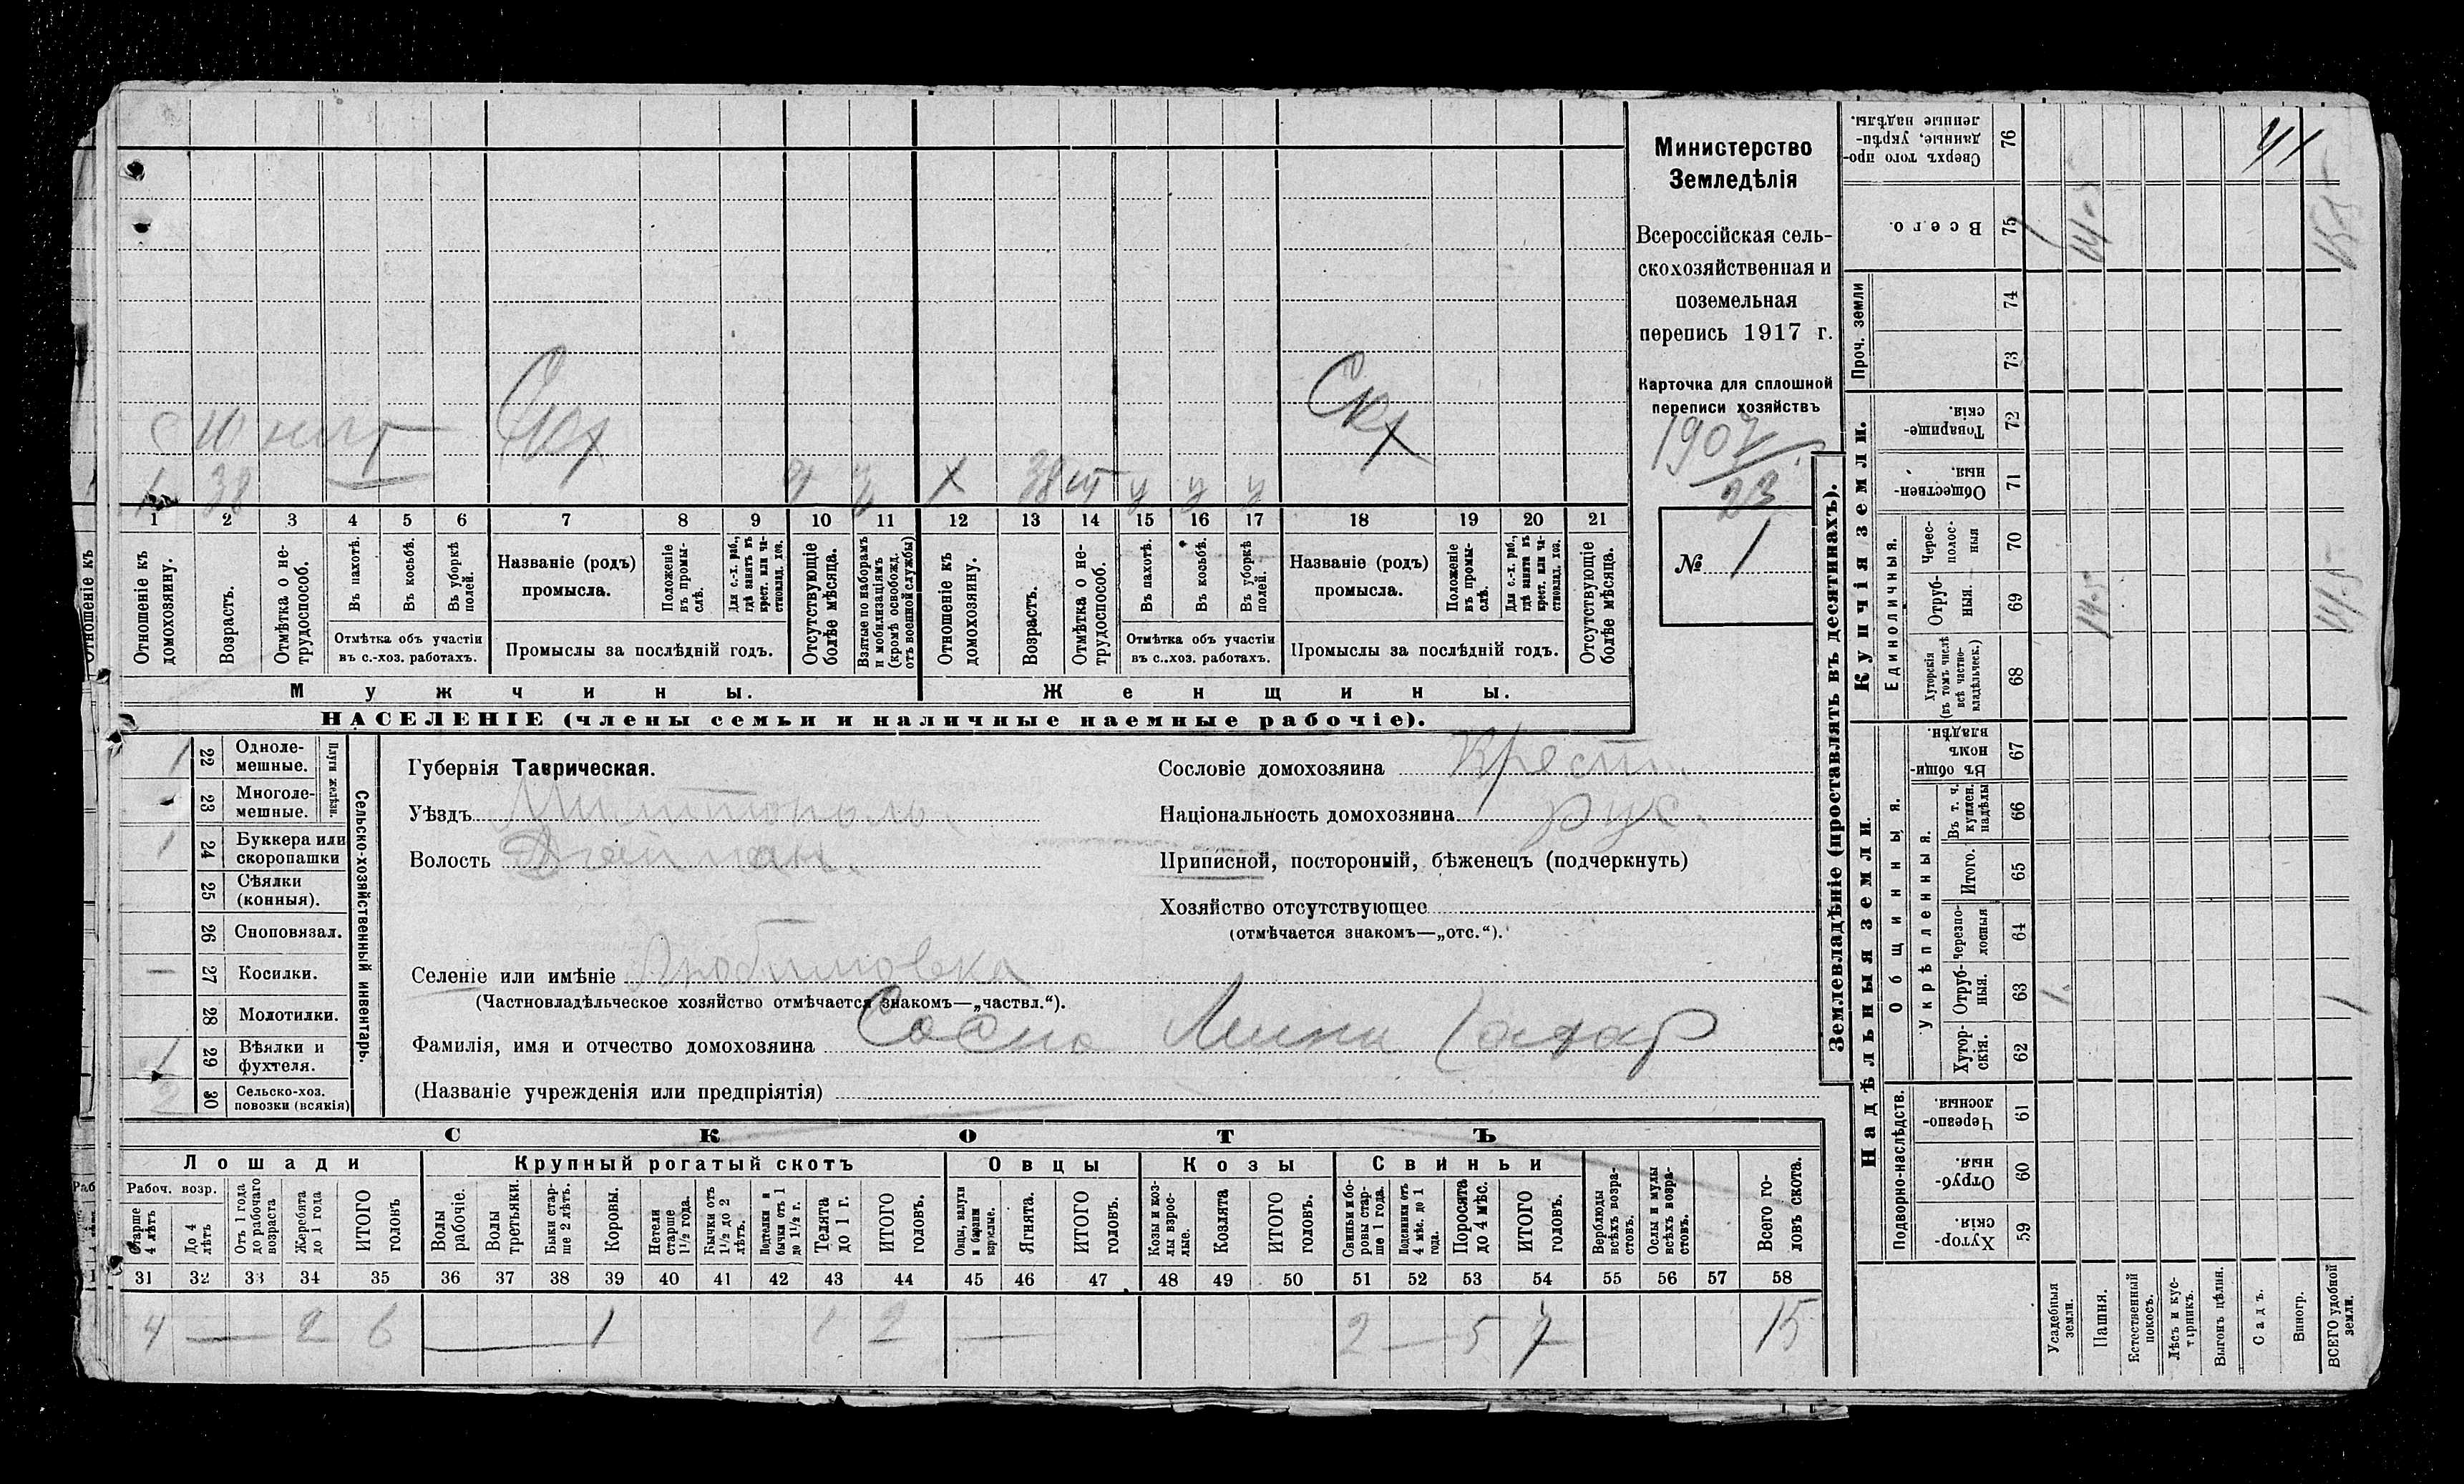 Министерство
Земледѣлія
Всероссійская сель-
скохозяйственная и
поземельная
перепись 1917 г.
Карточка для сплошной
переписи хозяйствъ
1907
23
№ 1
Скх
Скх
38 38
1 2 3 4 5 6 7 8 9 10 11 12 13 14 15 16 17 18 19 20 21
Отношеніе къ домохозяину.
Возрастъ.
Отмѣтка о не-трудоспособ.
Въ пахотѣ.
Въ косьбѣ.
Въ уборкѣ полей.
Отмѣтка объ участіи
въ с.-хоз. работахъ.
Названіе (родъ)
промысла.
Положеніе въ промы-слѣ.
Для с.-х. раб., гдѣ занятъ въ крест. или ча-стновлад. хоз.
Промыслы за послѣдній годъ.
Отсутствующіе болѣе мѣсяца.
Взятые по наборамъ и мобилизаціямъ (кромѣ освобожд. отъ военной службы)
Отношеніе къ домохозяину.
Возрастъ.
Отмѣтка о не-трудоспособ.
Въ пахотѣ.
Въ косьбѣ.
Въ уборкѣ полей.
Отмѣтка объ участіи
въ с.-хоз. работахъ.
Названіе (родъ)
промысла.
Положеніе въ промы-слѣ.
Для с.-х. раб., гдѣ занята въ крест. или ча-стновлад. хоз.
Промыслы за послѣдній годъ.
Отсутствующіе болѣе мѣсяца.
Мужчины.
Женщины.
НАСЕЛЕНІЕ (члены семьи и наличные наемные рабочіе).
Сельско-хозяйственный инвентарь.
Плуги желѣзн.
1 22 Одноле-мешные.
- 23 Многоле-мешные.
1 24 Буккера или скоропашки
25 Сѣялки (конныя).
26 Сноповязал.
— 27 Косилки.
28 Молотилки.
1 29 Вѣялки и фухтеля.
2 30 Сельско-хоз. повозки (всякія)
Губернія Таврическая.
Уѣздъ Мелитополь.
Волость
Селеніе или имѣніе Любимовка
(Частновладѣльческое хозяйство отмѣчается знакомъ—„частвл.“).
Фамилія, имя и отчество домохозяина Сосно
(Названіе учрежденія или предпріятія)
Сословіе домохозяина Крест.
Національность домохозяина рус.
Приписной, посторонній, бѣженецъ (подчеркнуть)
Хозяйство отсутствующее
(отмѣчается знакомъ—„отс.“).
СКОТЪ
Лошади
Крупный рогатый скотъ
Овцы
Козы
Свиньи
Рабоч. возр.
Старше 4 лѣтъ
До 4 лѣтъ
Отъ 1 года до рабочаго возраста
Жеребята до 1 года
ИТОГО головъ
Волы рабочіе.
Волы третьяки.
Быки стар-ше 2 лѣтъ.
Коровы.
Нетели старше 1½ года.
Бычки отъ 1½ до 2 лѣтъ.
Подтелки и бычки отъ 1 до 1½ г.
Телята до 1 г.
ИТОГО головъ.
Овцы, валухи и бараны взрослые.
Ягнята.
ИТОГО головъ.
Козы и коз-лы взрос-лые.
Козлята
ИТОГО головъ.
Свиньи и бо-ровы стар-ше 1 года.
Подсвинки отъ 4 мѣс. до 1 года.
Поросята до 4 мѣс.
ИТОГО головъ.
Верблюды всѣхъ возра-стовъ.
Ослы и мулы всѣхъ возра-стовъ.
Всего го-ловъ скота.
31 32 33 34 35 36 37 38 39 40 41 42 43 44 45 46 47 48 49 50 51 52 53 54 55 56 57 58
4 — 2 6 — 1 1 2 — 2 — 5 7 15
Землевладѣніе (проставлять въ десятинахъ).
Надѣльныя земли.
Купчія земли.
Подворно-наслѣдств.
Общинныя.
Укрѣпленныя.
Единоличныя.
Проч. земли
Хутор-скія. 59
Отруб-ныя. 60
Черезпо-лосныя. 61
Хутор-скія. 62
Отруб-ныя. 63
Черезпо-лосныя 64
Итого. 65
Въ т. ч. куплен. надѣлы 66
Въ общи-номъ владѣн. 67
Хуторскія (въ томъ числѣ всѣ частно-владѣльческ.) 68
Отруб-ныя. 69
Черес-полос-ныя 70
Обществен-ныя. 71
Товарище-скія. 72
73
74
Всего. 75
Сверхъ того про-данные, укрѣп-ленные надѣлы. 76
Усадебныя земли.
Пашня.
Естественный покосъ.
Лѣсъ и кус-тарникъ.
Выгонъ цѣлин.
Садъ.
Виногр.
ВСЕГО удобной земли.
1
14.5
14.5
1
41